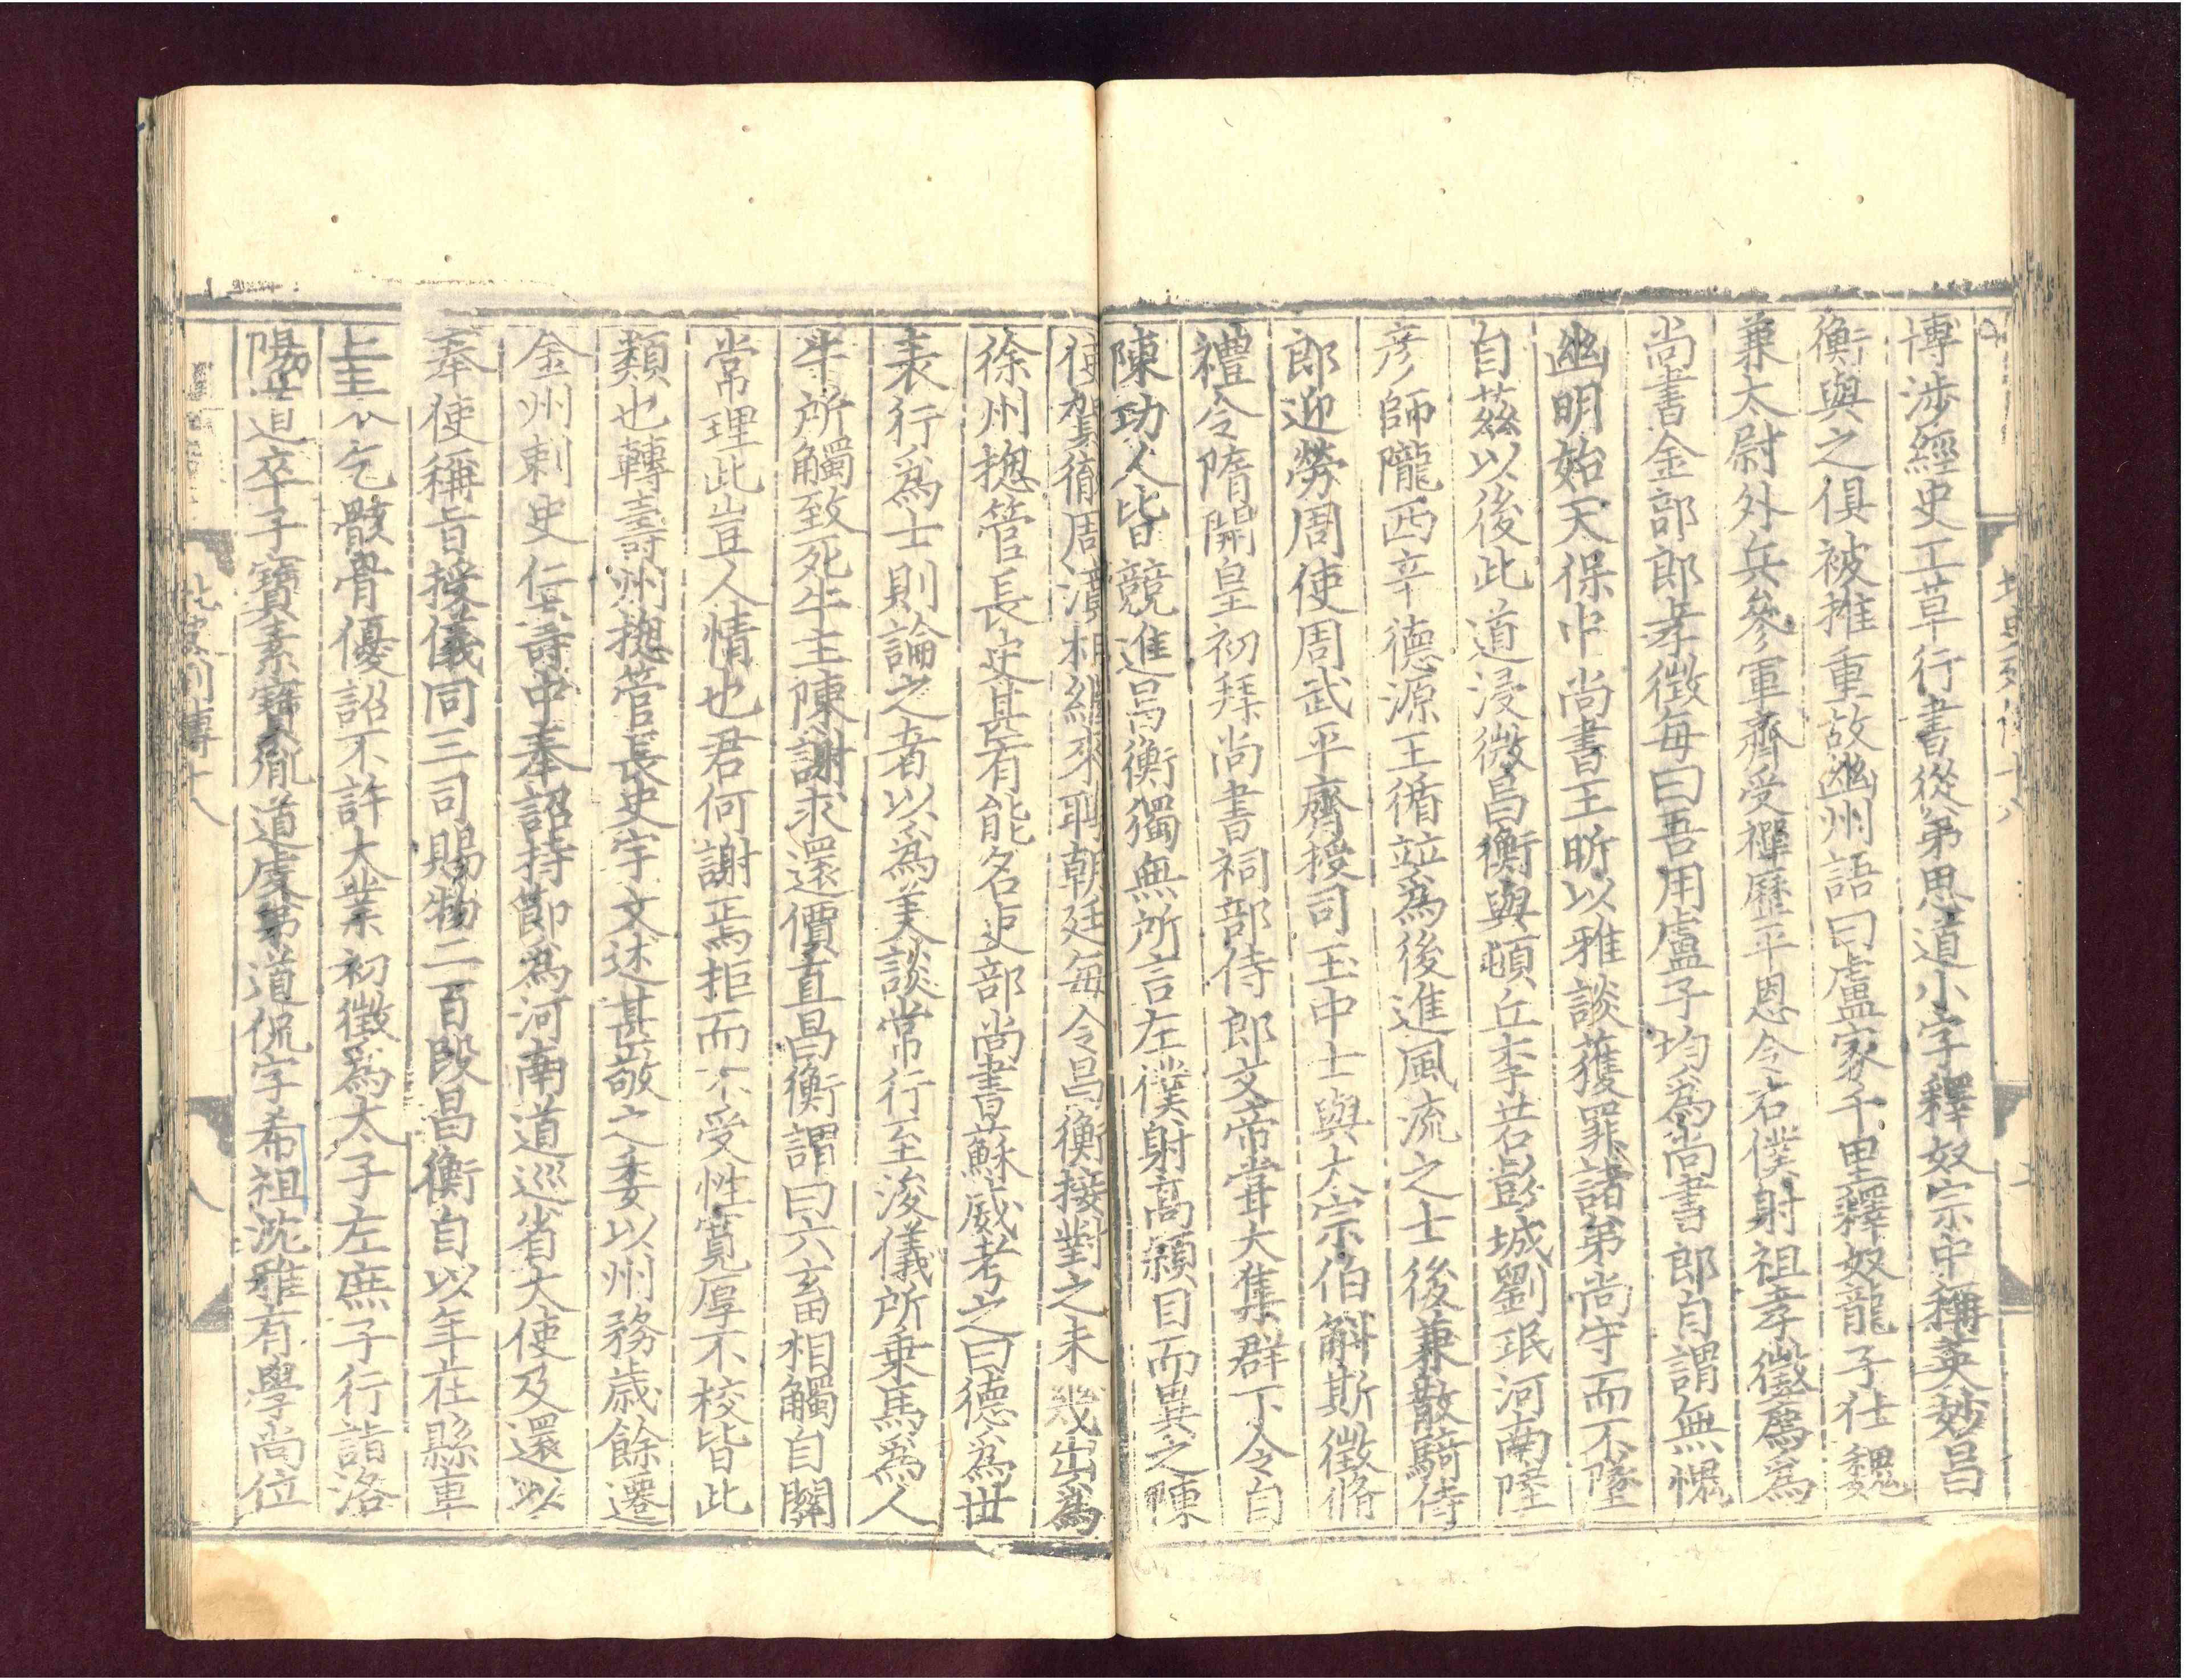 博涉經史工草行書從弟思道小字釋奴宗中稱英妙昌
衡與之俱被推重故幽州語曰盧家千里釋奴龍子仕魏
兼太尉外兵參軍齊受禪歷平恩令右僕射祖孝徵薦爲
尚書金部郎孝徵每曰吾用盧子均爲尚書郎自謂無愧
幽明始天保中尚書王昕以雅談獲罪諸弟尚守而不墜
自茲以後此道浸微昌衡與頓丘李若彭城劉珉河南陸
彦師隴西辛德源王循並爲後進風流之士後兼散騎侍
郎迎勞周使周武平齊授司玉中士與大宗伯斛斯徵脩
禮令隋開皇初拜尚書祠部侍郎文帝嘗大集群下令自
陳功人皆競進昌衡獨無所言左僕射高熲目而異之陳
使賀徹周濆相繼來聘朝廷每令昌衡接對之未幾出爲
徐州揔管長史甚有能名吏部尚書蘇威考之曰德爲世
表行爲士則論之者以爲美談常行至浚儀所乗馬爲人
牛所觸致死牛主陳謝求還價直昌衡謂曰六畜相觸自關
常理此豈人情也君何謝焉拒而不受性寛厚不校皆此
類也轉壽州揔管長史宇文述甚敬之委以州務歲餘遷
金州刺史仁壽中奉詔持節爲河南道巡省大使及還以
奉使稱旨授儀同三司賜物二百段昌衡自以年在縣車
上表乞骸骨優詔不許大業初徵爲太子左庶子行詣洛
陽道卒子寶素寶胤道虔弟道侃字希祖沈雅有學尚位
北史列傳十八
八